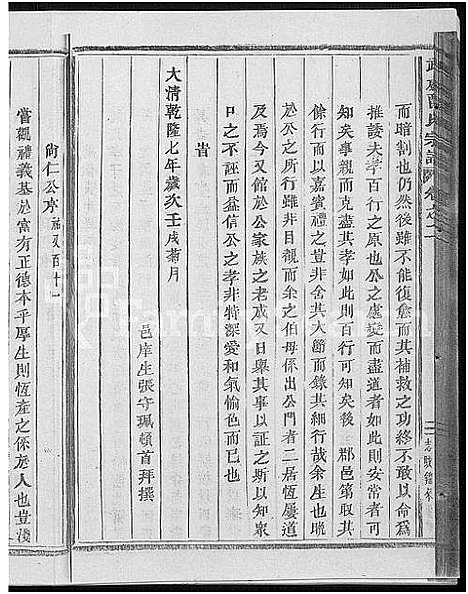 而暗割也仍然後雖不能復愈而其補救之功終不敢以命爲
推諉夫孝百行之原也公之處變而盡道者如此則安常者可
知矣事親而克盡其孝如此則百行可知矣後 郡邑第取其
餘行而以嘉賓禮之豈非舍其大節而錄其細行哉余生也晩
於公之所行雖非目覩而余之伯母係出公門者二居恆屢道
及焉今又館於公家族之老成又日舉其事以証之斯以知衆
口之不誣而益信公之孝非特深愛和氣愉色而已也
旹
大清乾隆七年歲次壬戌菊月
邑庠生張守珮頓首拜撰
尙仁公序 福又百十一
當觀禮義基於富有正德本乎厚生則恆產之係於人也豈淺
氏宗譜